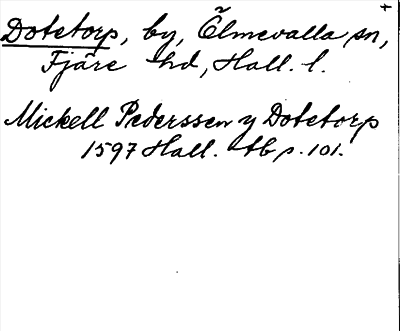 +
Dotetorp, by, Ölmevalla sn,
Fjäre hd, Hall. l.
Mickell Pederssen y Dotetorp
1597 Hall. tb p. 101.